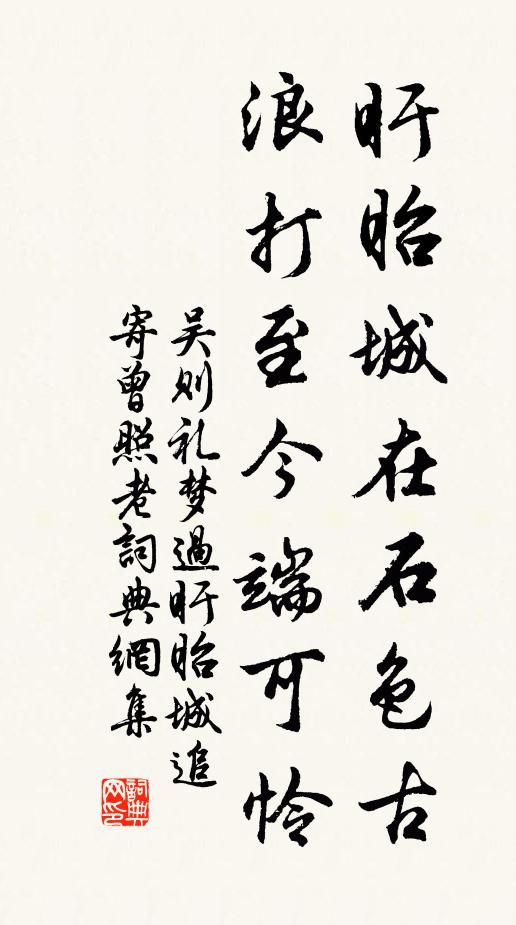 盱眙城在石色古
浪打至今端可怜
吴则礼梦過盱眙城追
寄曾照老詞典網集
詞典网印